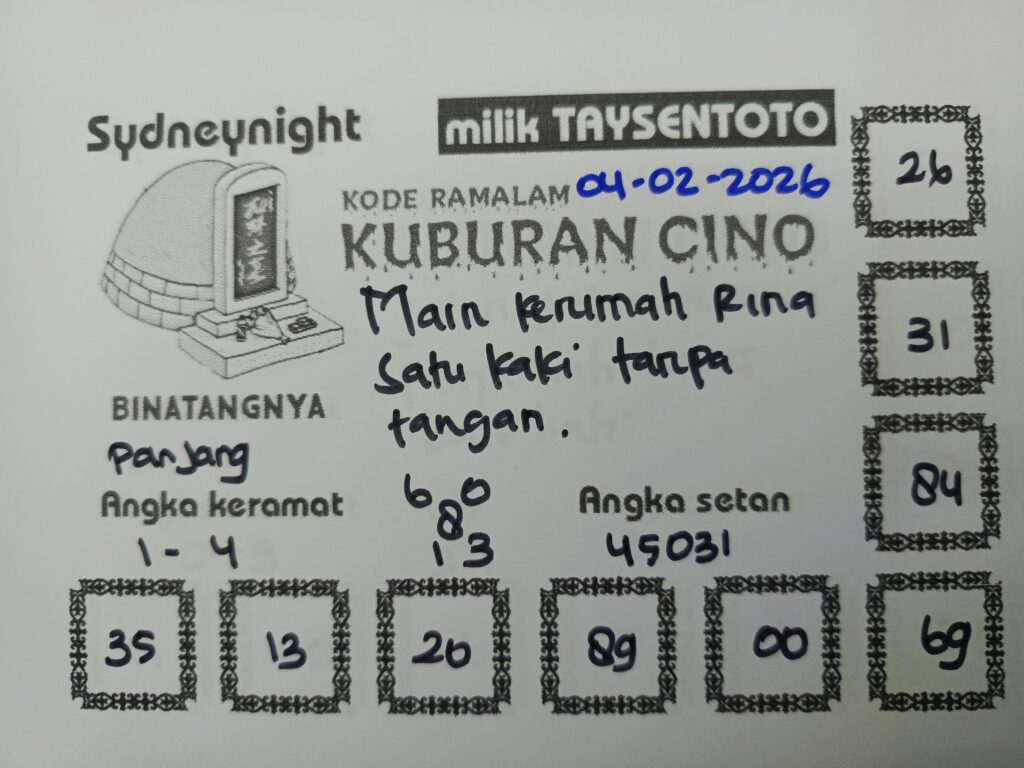 Sydneynight
milik TAYSENTOTO
KODE RAMALAM 04-02-2026
KUBURAN CINO
Main kerumah Rina
Satu kaki tanpa
tangan.
BINATANGNYA
Panjang
Angka keramat
1 - 4
6 0
8
1 3
Angka setan
45031
26
31
84
35
13
20
89
00
69